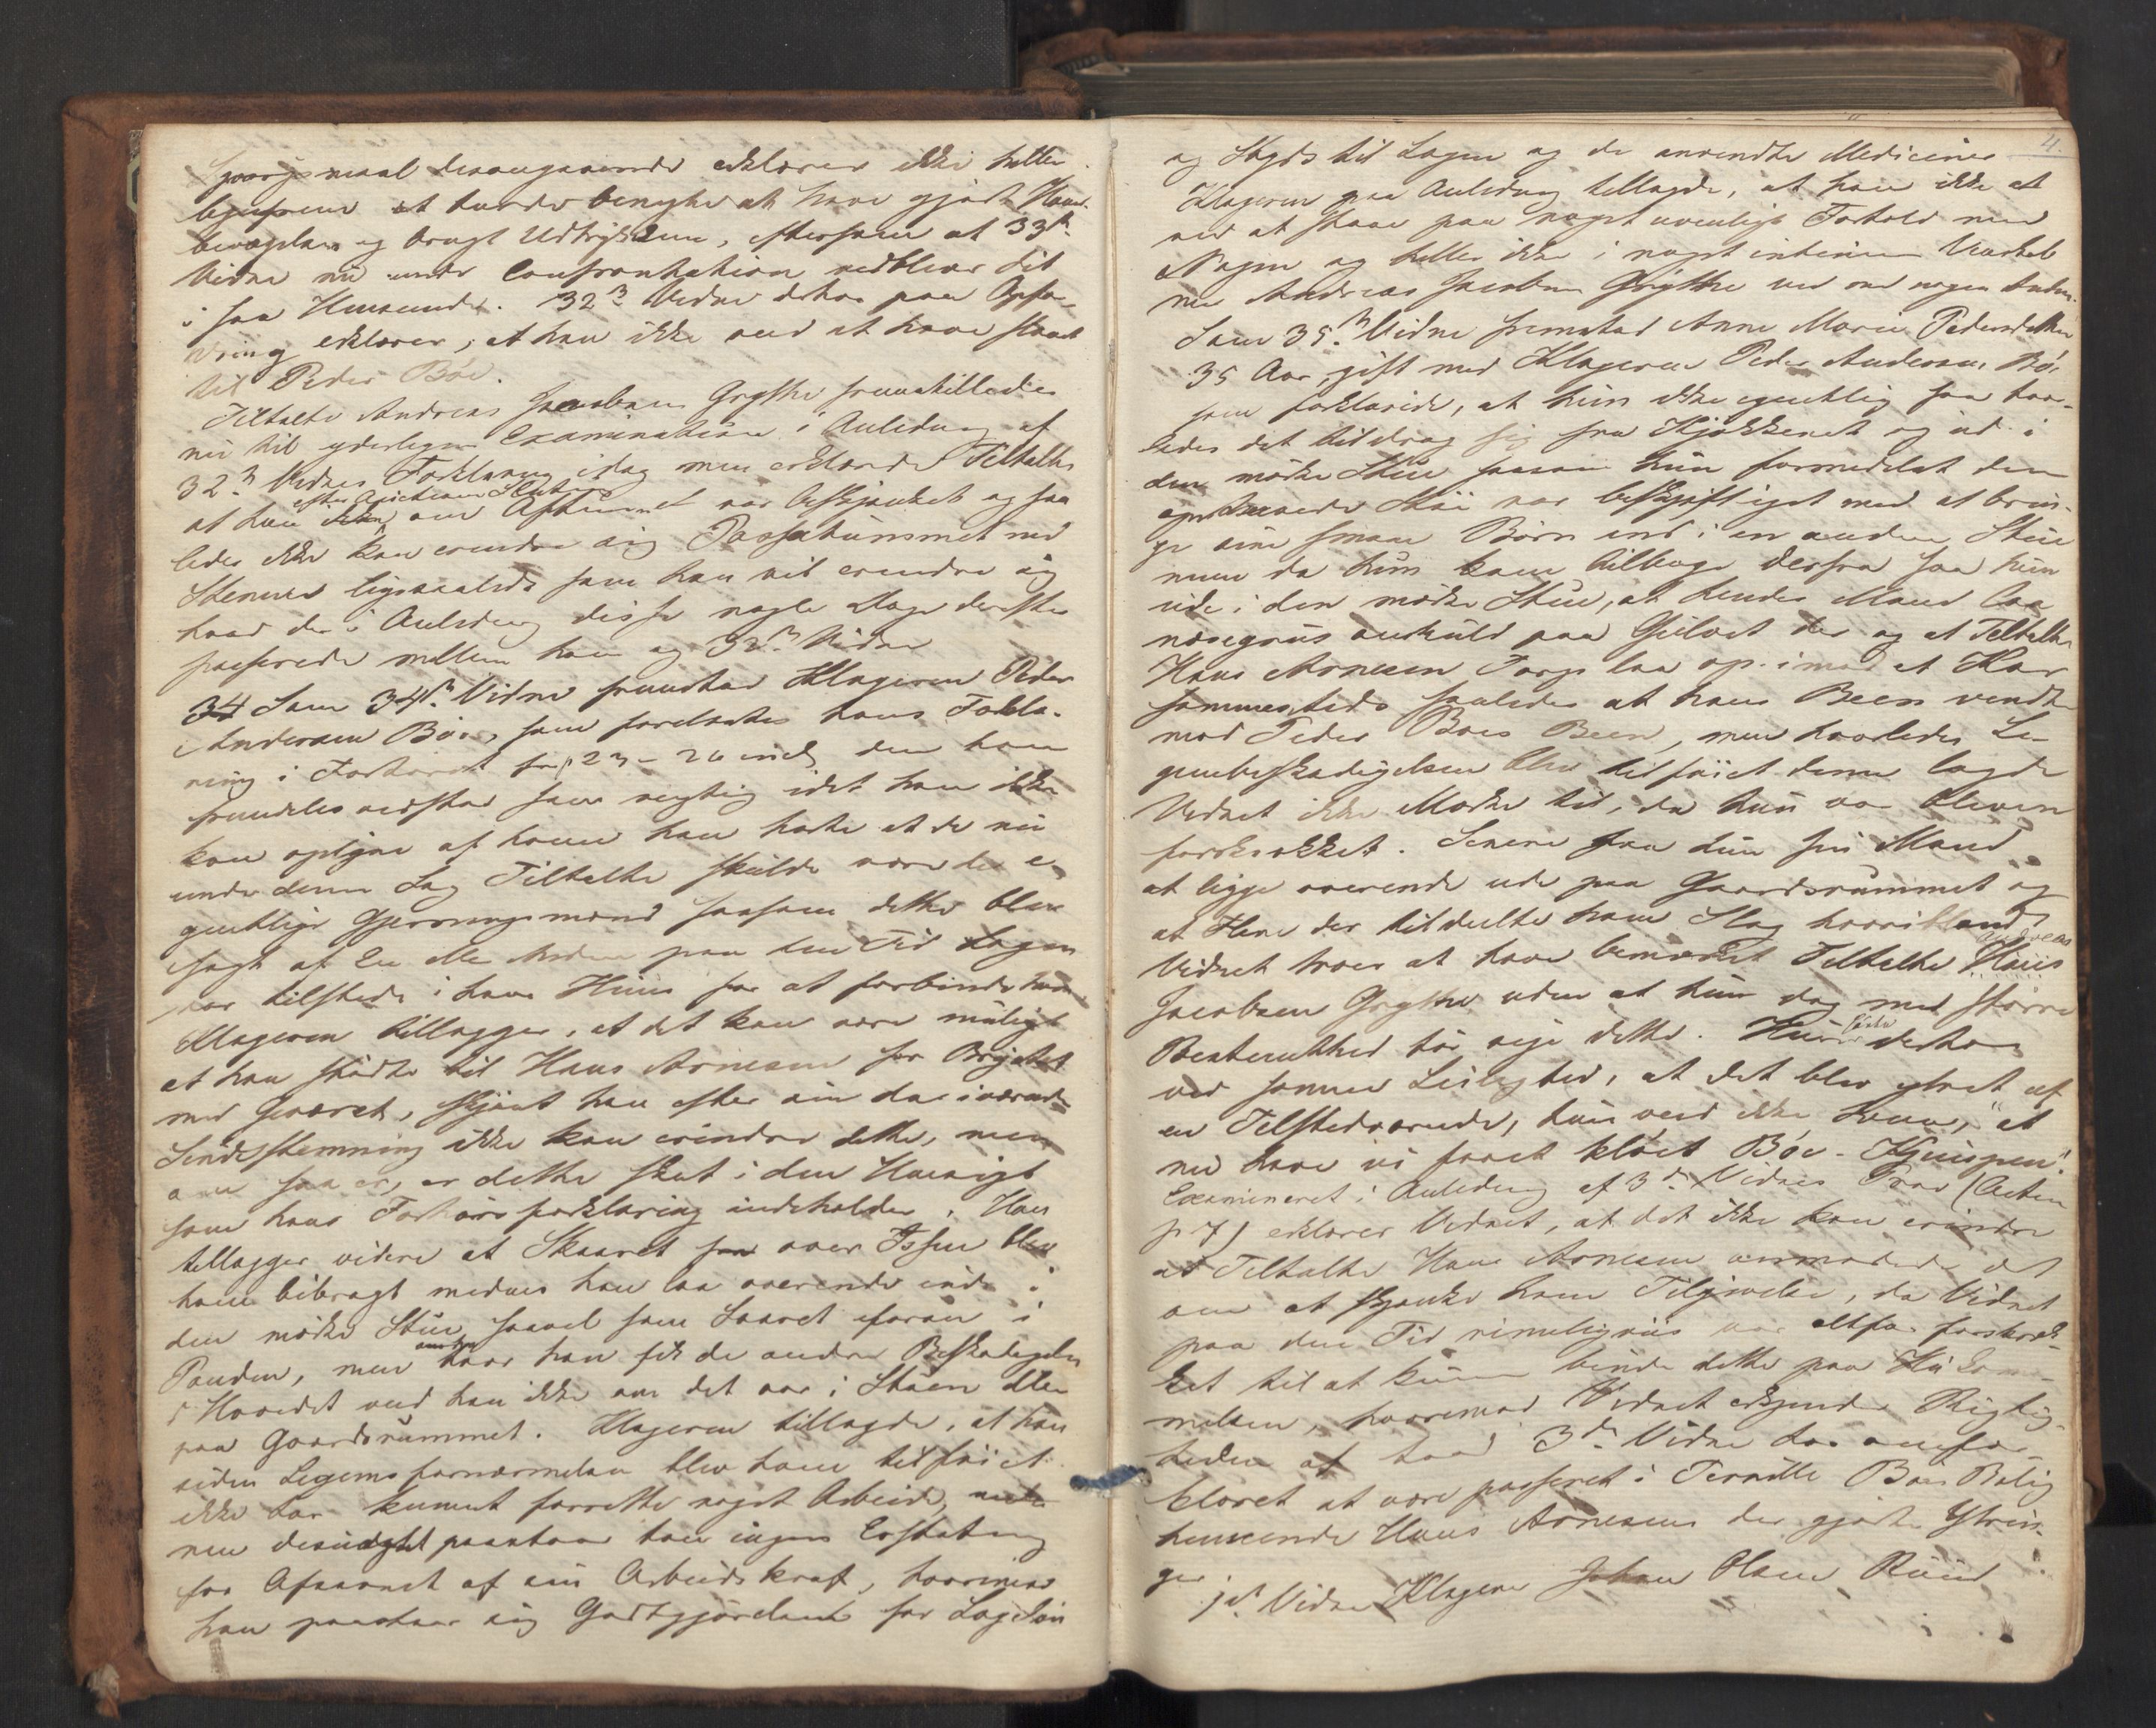 Spørgsmaal desangaaende erklærer ikke heller
ligesom at turde benegte at have gjort Haand-
bevægelser og brugt Udtrykkene, eftersom at 33te
Vidne nu under Confrontation vedblev sit
i saa Henseende. 32te Vidne dehos paa Opfor-
dring erklærer, at han ikke ved at have slaaet
til Peder Bøe.
Tiltalte Andreas Jacobsen Grythe fremstilledes
nu til yderligere Examination i Anledning af
32te Vidnes Forklaring idag men erklærede Tiltalte
efter Auctionens Slutning
at han om Aftenen var beskjænket og saa-
ledes ikke kan erindre sig Passiarsmet med
Stenene ligesaalidt som han vil erindre sig
hvad der i Anledning disse nogle Dage derefter
passerede mellem ham og 32te Vidne
34 Som 34te Vidne fremstod Klageren Peder
Andersen Bøe, som forelæstes hans Forkla-
ring i Forhøret fra p 23 - 26 incl, den han
fremdeles vedstod som rigtig idet han ikke
kan oplyse af hvem han hørte at de nu
under denne Sag Tiltalte skulde være de e-
gentlige Gjerningsmænd saasom dette blev
sagt af En eller Anden paa den Tid Lægen
var tilstede i hans Huus for at forbinde ham
Klageren tillægger, at det kan være muligt
at han stødte til Hans Arnesen for Brystet
med Geværet, skjønt han efter sin da iværende
Sindsstemning ikke kan erindre dette, men
om saa er, er dette skeet i den Hensigt
som hans Forhørsforklaring indeholder. Han
tillægger videre at Skaaret over Issen blev
ham bibragt medens han laa overende inde i
den mørke Stue saavel som Saaret foran i
Panden, men hvor han fik de andre Beskadigelser
i Hovedet ved han ikke om det var i Stuen eller
paa Gaardsrummet. Klageren tillagde, at han
siden Legemsfornærmelsen blev ham tilføiet
ikke har kunnet forrette noget Arbeide,
men desuagtet paastaar han ingen Erstatning
for Afsavnet af sin Arbeidskraft, hvorimod
han paastaar sig Godtgjørelse for Lægeløn
4.
og Skyds til Lægen og de anvendte Mediciner
Klageren paa Anledning tillagde, at han ikke at
ved at staae paa noget uvenligt Forhold med
Nogen og heller ikke i noget intimere Venskab
med Andreas Jacobsen Grythe end med nogen Anden.
Som 35te Vidne fremstod Anne Marie Pedersdatter
35 Aar, gift med Klageren Peder Andersen Bøe
som forklarede, at hun ikke egentlig saa hvor-
ledes det tildrog sig fra Kjøkkenet og ud i
den mørke Stue saasom hun formedelst den
opkomne Støi var beskjæftiget med at brin-
ge sine smaae Børn ind i en anden Stue
men da hun kom tilbage derfra saa hun
ude i den mørke Stue, at hendes Mand laa
næsegruus omkuld paa Gulvet der og at Tiltalte
Hans Arnesen Torp laa op imod et Kar
sammesteds saaledes at hans Been vendte
mod Peder Bøes Been, men hvorledes Le-
gemsbeskadigelsen blev tilføiet denne lagde
Vidnet ikke Mærke til, da hun var bleven
forskrækket. Senere saa hun sin Mand
at ligge overende ude paa Gaardsrummet og
at Flere der tildeelte ham Slag hvoriblandt
Vidnet troer at have bemærket Tiltalte Andreas
Jacobsen Grythe uden at hun dog med større
Bestemthed tør sige dette. Hun hørte derhos
ved samme Leilighed, at det blev ytret af
en Tilstedeværende, hun veed ikke hvem, "at
nu have vi faaet kløet Bøe-Kjeispen".
Examineret i Anledning af 3die Vidnes Prov (Acten
p 7) erklærer Vidnet, at det ikke kan erindre
at Tiltalte Hans Arnesen anmodede det
om at skjænke ham Tilgivelse, da Vidnet
paa den Tid rimeligviis var altfor forskræk-
ket til at kunne binde dette paa Hukom-
melsen, hvorimod Vidnet erkjender Rigtig-
heden af hvad 3die Vidne har anfor-
klaret at være passeret i Pernille Bøes Bolig
henseende Hans Arnesens der gjorte Ytrin-
ger
1ste Vidne Klageren Johan Olsen Ruud